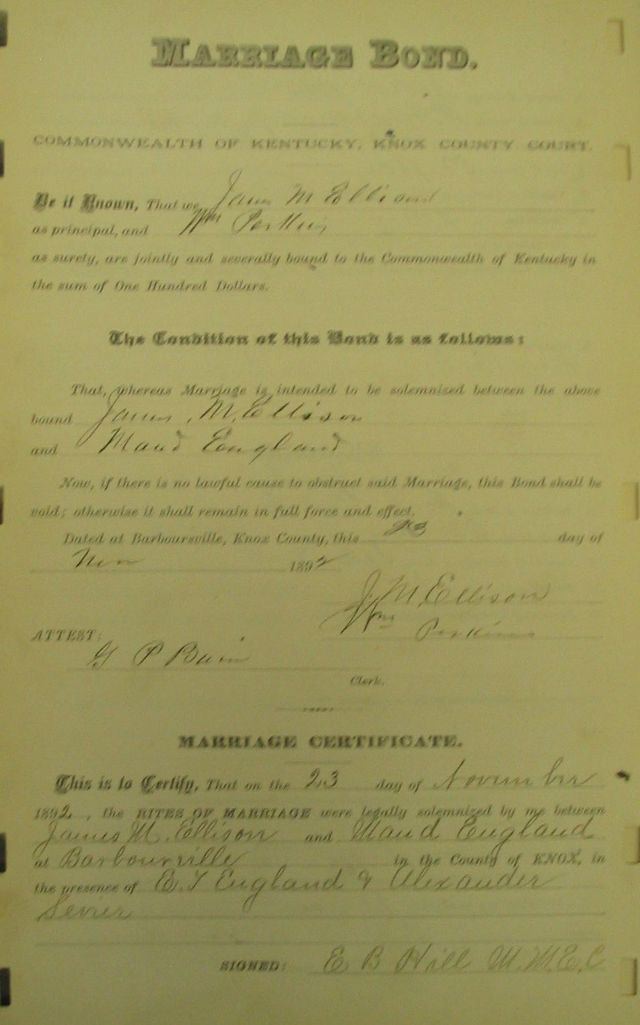 MARRIAGE BOND.
COMMONWEALTH OF KENTUCKY, KNOX COUNTY COURT.
Be it Known, That we James M Ellison
as principal, and Wm Perkins
as surety, are jointly and severally bound to the Commonwealth of Kentucky in
the sum of One Hundred Dollars.
The Condition of this Bond is as follows:
That, whereas Marriage is intended to be solemnized between the above
bound James M. Ellison
and Maud England
Now, if there is no lawful cause to obstruct said Marriage, this Bond shall be
void; otherwise it shall remain in full force and effect.
Dated at Barboursville, Knox County, this day of
Nov 1892
J M Ellison
Wm Perkins
ATTEST:
G P Bain
Clerk.
MARRIAGE CERTIFICATE.
This is to Certify, That on the 23 day of November
1892., the RITES OF MARRIAGE were legally solemnized by me between
James M. Ellison and Maud England
at Barbourville in the County of KNOX, in
the presence of E. T England & Alexander
Sevier
SIGNED: E B Hill M. M. E. C